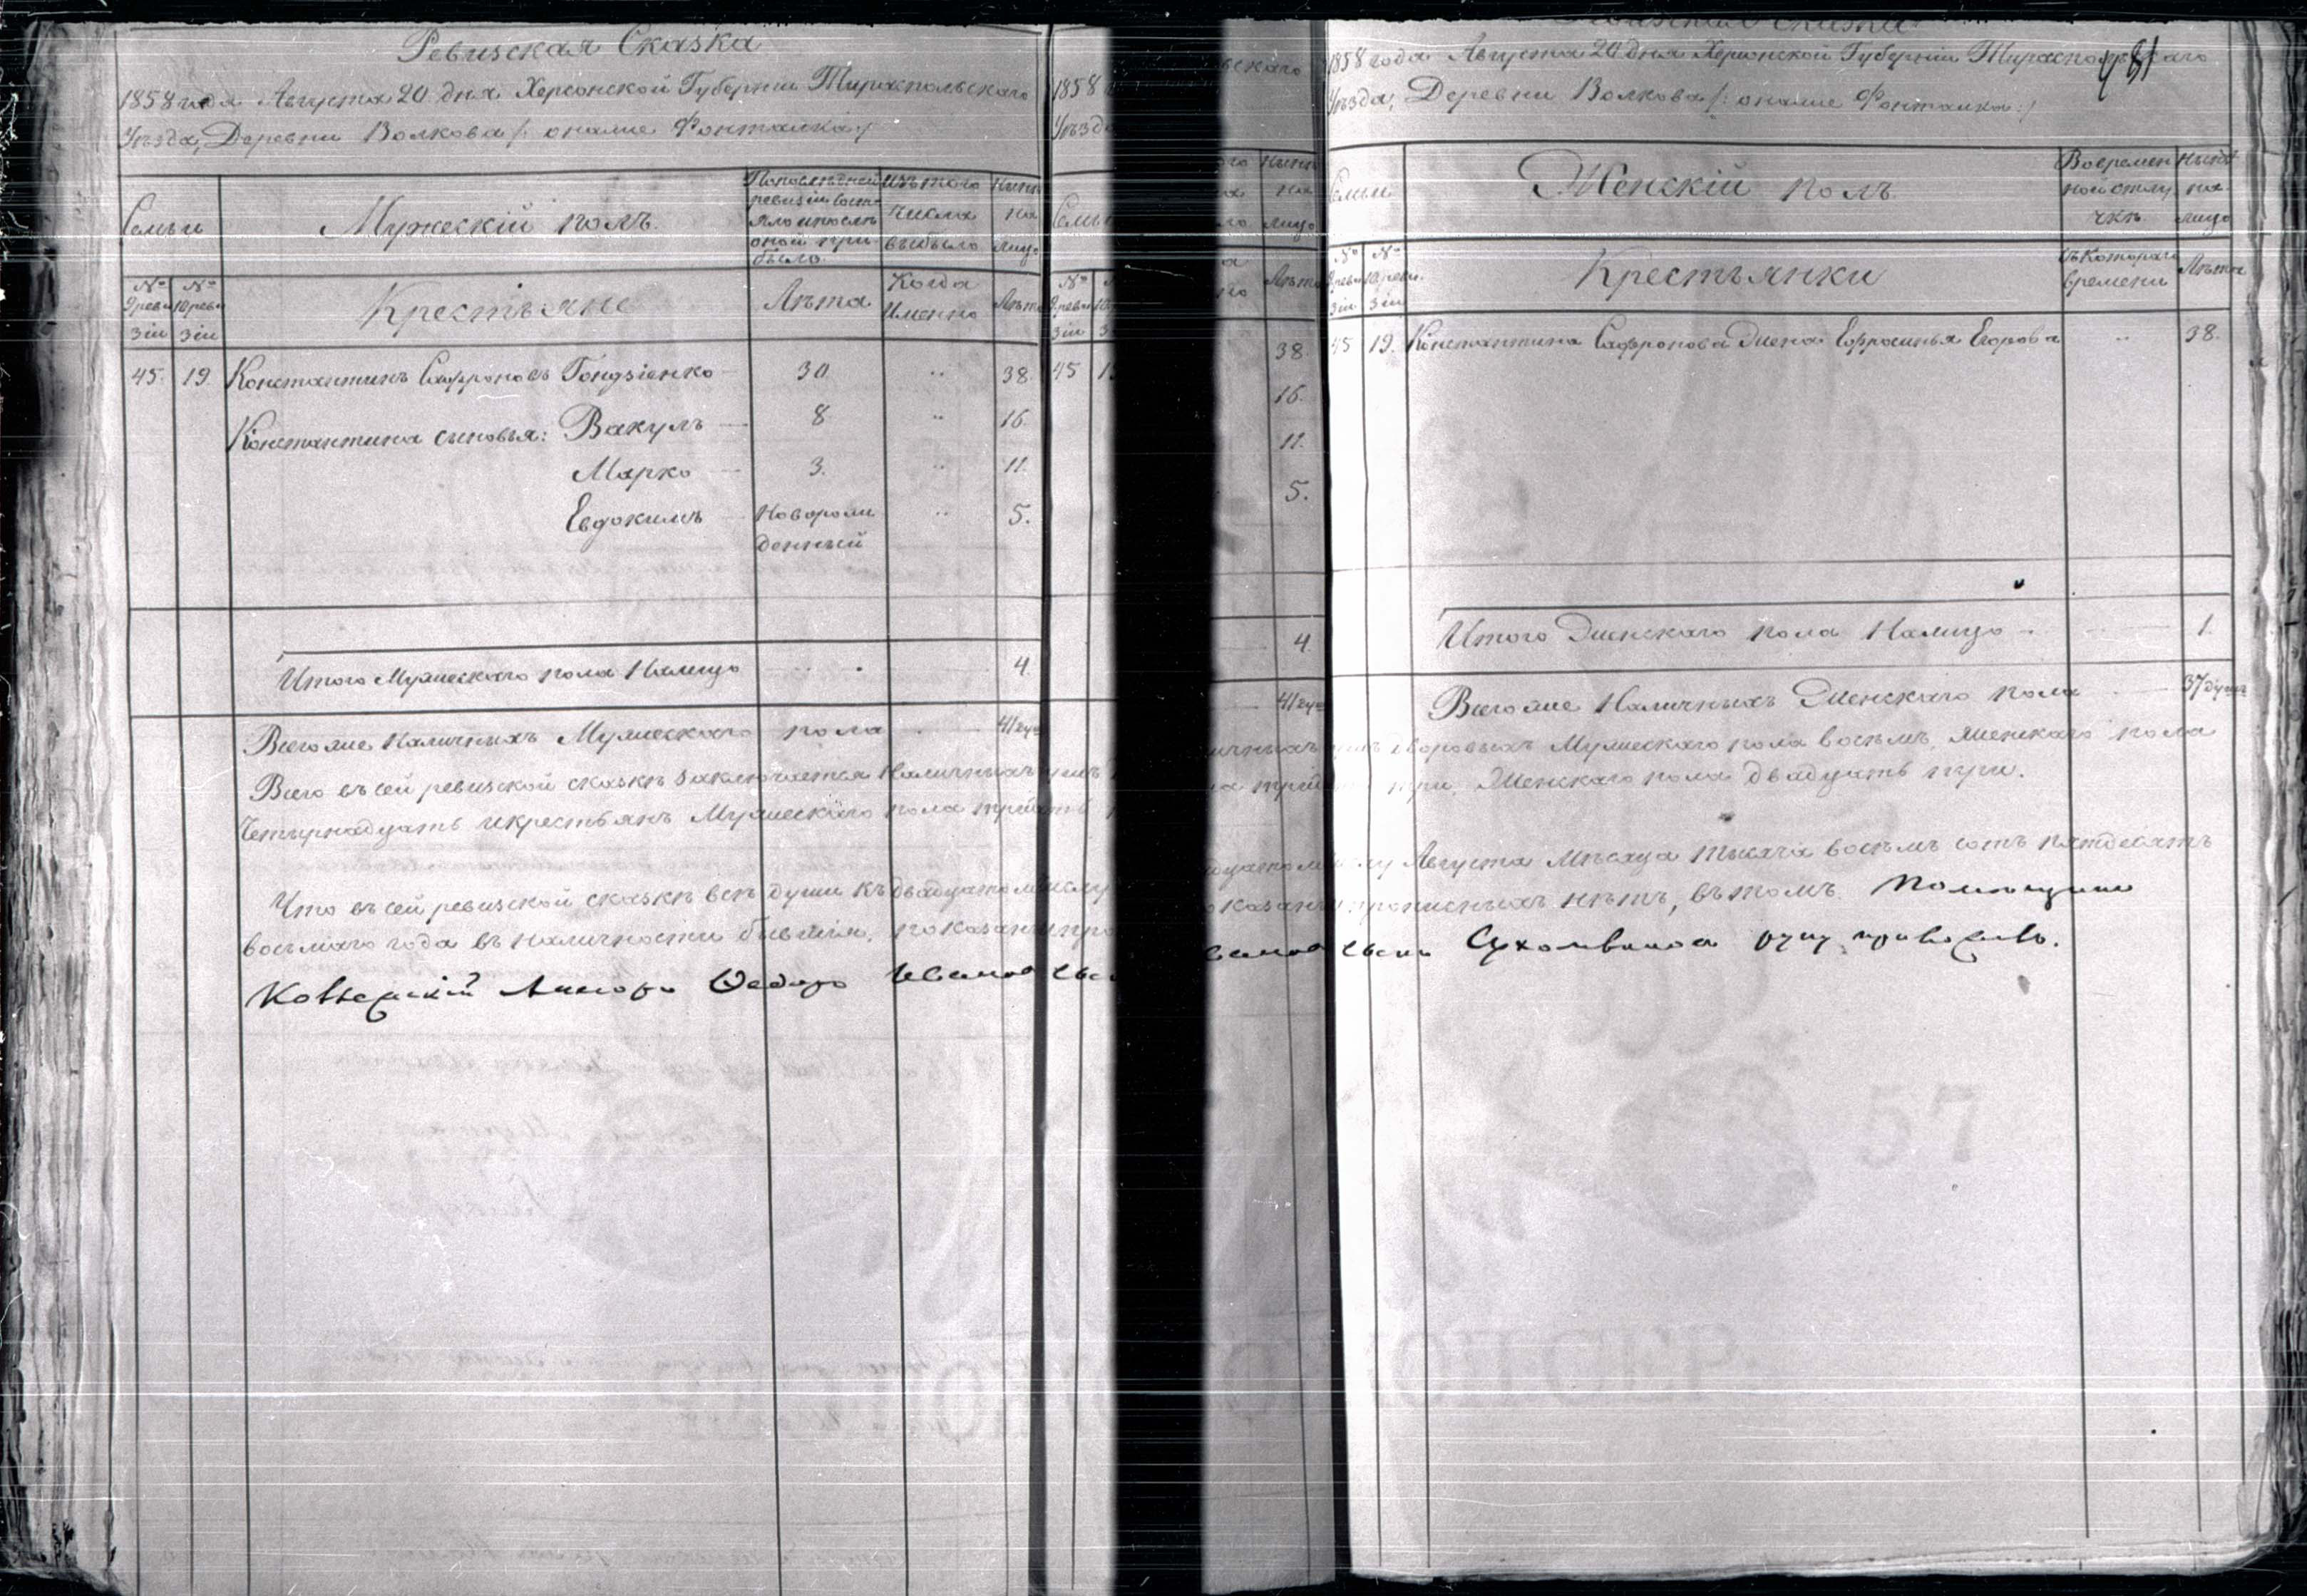 Ревизская Сказка
1858 года Августа 20 дня Херсонской Губернии Тираспольскаго
Уѣзда, Деревни Волкова /: онаже Фонтанка :/
Семьи
Мужескій полъ.
По послѣдней
ревизіи состо
яло и послѣ
оной при
было.
Изъ того
числа
выбыло
Нынѣ
на
лицо
№ 9 реви зіи
№ 10 реви зіи
Крестьяне
Лѣта
Когда
Именно
Лѣта
45. 19. Константинъ Сафроновъ 30. " 38.
Константина сыновья: Вакулъ — 8. " 16.
Марко — 3. " 11.
Евдокимъ — Новорож " 5.
денный
Итого Мужескаго пола Налицо 4.
Всего же Наличныхъ Мужескаго пола 41
Всего въ сей ревизской сказкѣ заключается Наличныхъ
Четырнадцать и крестьянъ Мужескаго пола
Что въ сей ревизской сказкѣ всѣ души къ двадцатому числу
восьмаго года въ наличности бывшія, показаны
1858
Уѣзда
45
38.
16.
11.
5.
4
41
1858 года Августа 20 дня Херсонской Губерніи Тираспольскаго
481
Уѣзда, Деревни Волкова /: онаже Фонтанка :/
Семьи
Женскій полъ.
Во времен
ной отлу
чкѣ.
Нынѣ
на
лицо
№ 9 реви зіи
№ 10 реви зіи
Крестьянки
Съ котораго
времени
Лѣта
45 19. Константина Сафронова Жена Ефросинья Егорова " 38.
Итого Женскаго пола Налицо 1.
Всего же Наличныхъ Женскаго пола 37 душъ
дворовыхъ Мужескаго пола восемь, женскаго пола
три, Женскаго пола двадцать три.
Августа Мѣсяца тысяча восемь сотъ пятдесятъ
прописныхъ нѣтъ, въ томъ
57